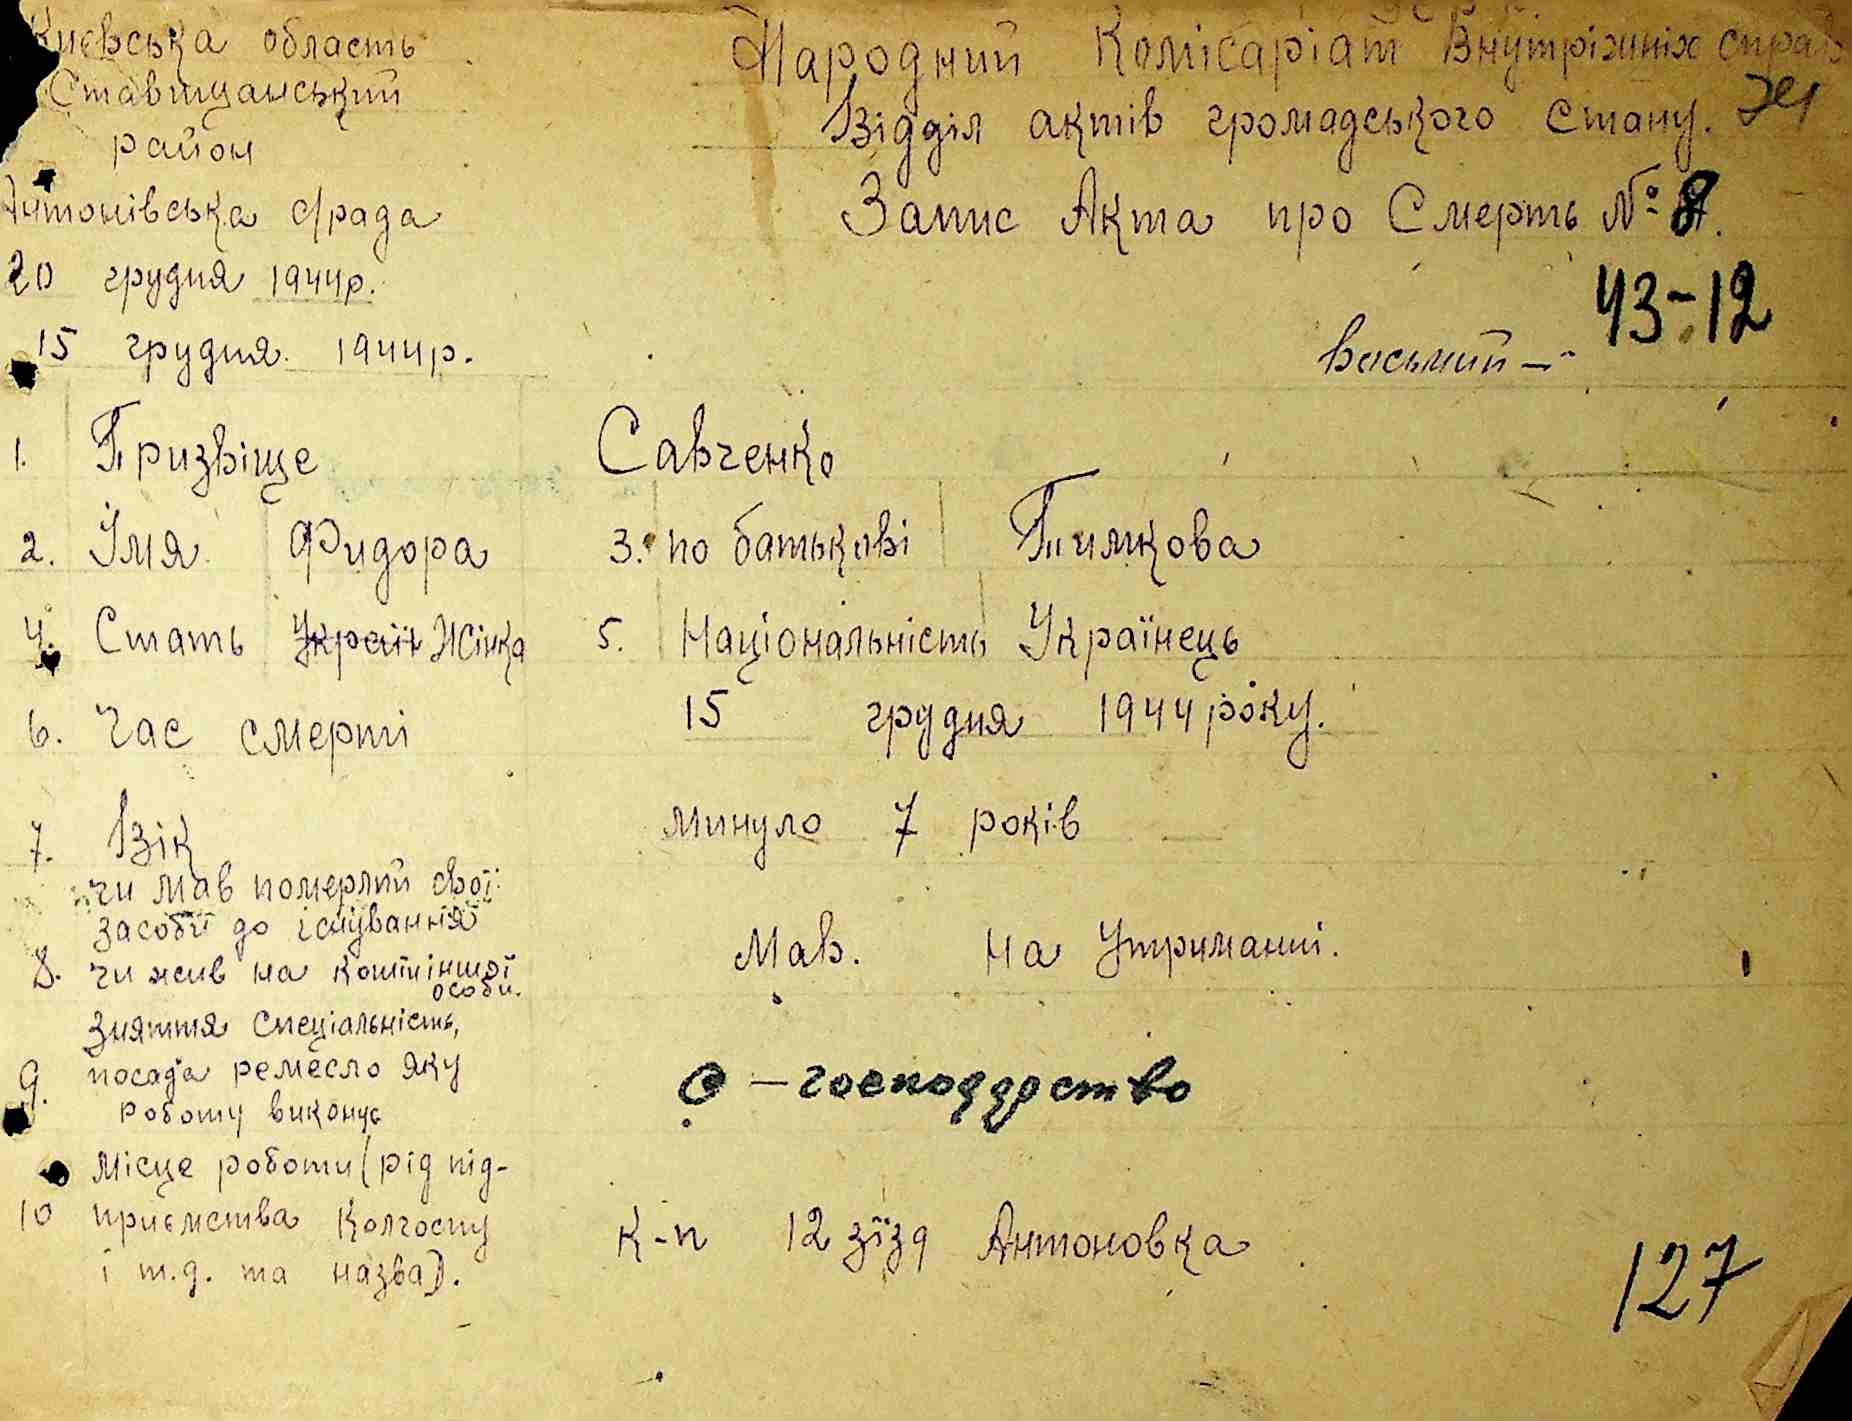 Києвська область
Ставищанський
район
Антонівська с/рада
20 грудня 1944р.
15 грудня 1944р.
Народний Комісаріат Внутрішніх справ
Відділ актів громадського стану.
Запис Акта про Смерть № 8.
43-12
восьмий –
1. Призвіще Савченко
2. Їмя Фидора 3. по батькові Тимкова
4. Стать Україн Жінка 5. Національність Українець
6. Час смерті 15 грудня 1944 року.
7. Вік минуло 7 років
чи мав померлий свої
засоби до існування
8. чи жив на кошти іншої Мав. На Утриманні.
особи.
Зняття спеціальність,
9. посада ремесло яку с – господарство
роботу виконує
Місце роботи (рід під-
10 приємства Колгоспу к-п 12 зїзд Антоновка
і т.д. та назва).
127